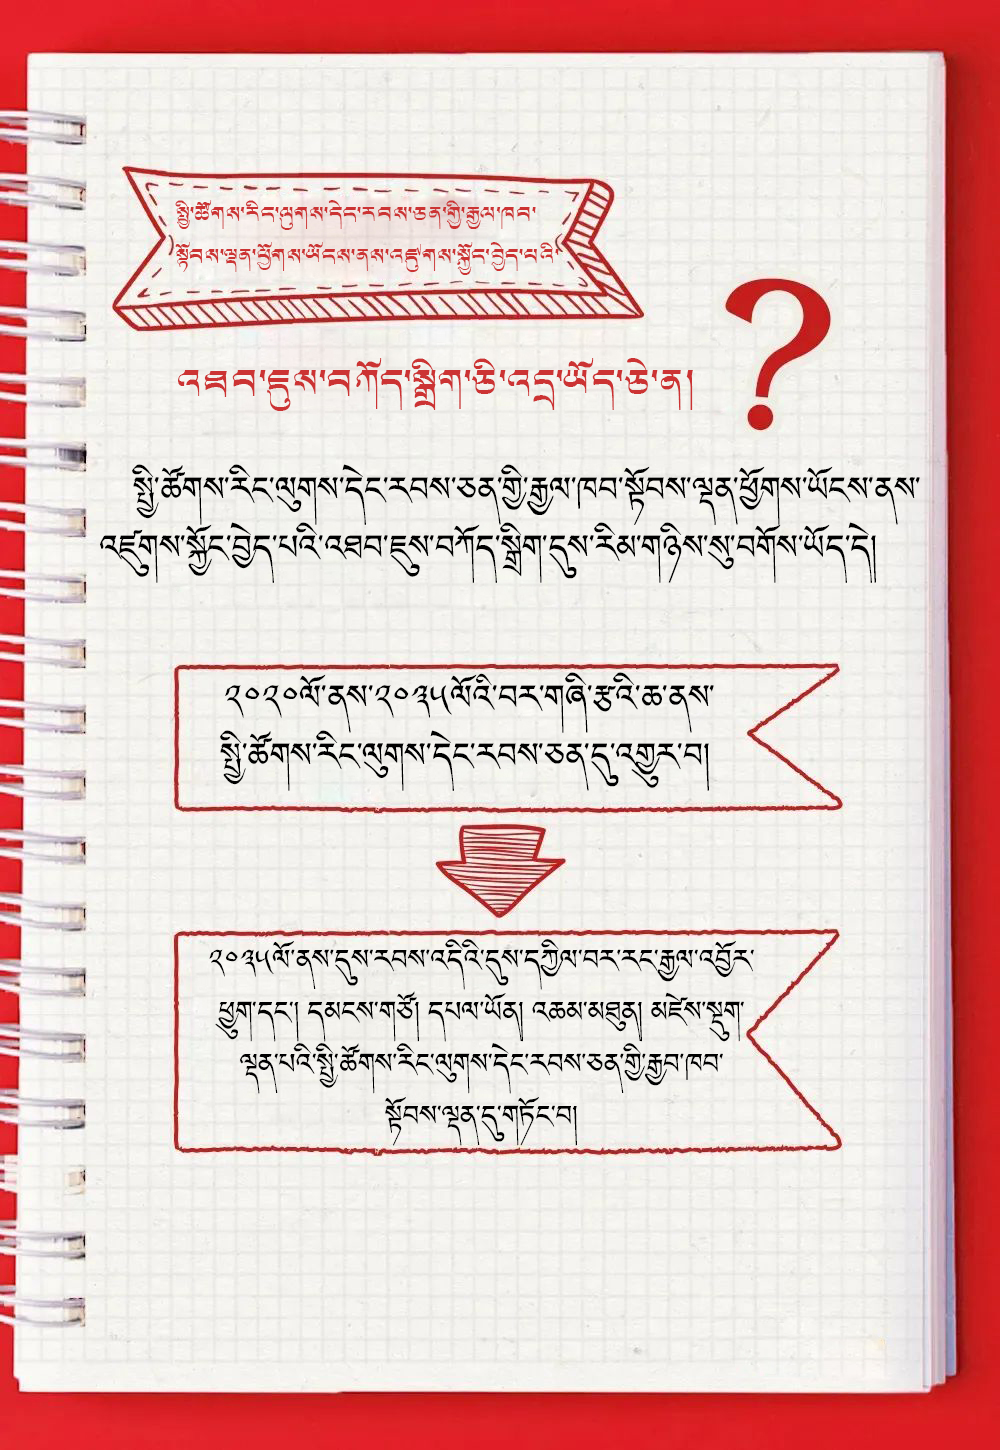 སྤྱི་ཚོགས་རིང་ལུགས་དེང་རབས་ཅན་གྱི་རྒྱལ་ཁབ་
སྟོབས་ལྡན་ཕྱོགས་ཡོངས་ནས་འཛུགས་སྐྱོང་བྱེད་པའི་
འཐབ་ཇུས་བཀོད་སྒྲིག་ཅི་འདྲ་ཡོད་ཅེ་ན། ?
སྤྱི་ཚོགས་རིང་ལུགས་དེང་རབས་ཅན་གྱི་རྒྱལ་ཁབ་སྟོབས་ལྡན་ཕྱོགས་ཡོངས་ནས་
འཛུགས་སྐྱོང་བྱེད་པའི་འཐབ་ཇུས་བཀོད་སྒྲིག་དུས་རིམ་གཉིས་སུ་བགོས་ཡོད་དེ།
༢༠༢༠ལོ་ནས་༢༠༣༥ལོའི་བར་གཞི་རྩའི་ཆ་ནས་
སྤྱི་ཚོགས་རིང་ལུགས་དེང་རབས་ཅན་དུ་འགྱུར་བ།
༢༠༣༥ལོ་ནས་དུས་རབས་འདིའི་དུས་དཀྱིལ་བར་རང་རྒྱལ་འབྱོར་
ཕྱུག་དང་། དམངས་གཙོ། དཔལ་ཡོན། འཆམ་མཐུན། མཛེས་སྡུག་
ལྡན་པའི་སྤྱི་ཚོགས་རིང་ལུགས་དེང་རབས་ཅན་གྱི་རྒྱབ་ཁབ་
སྟོབས་ལྡན་དུ་གཏོང་བ།